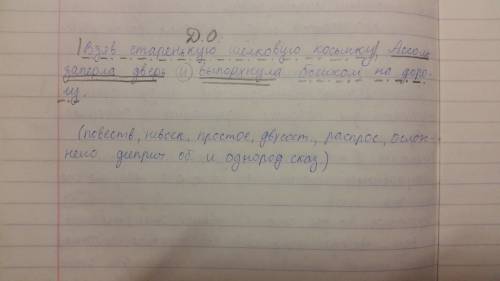 Д.О.
|Взяв старенькую шелковую косынку|, Ассоль
заперла дверь и выпорхнула босиком на доро-
гу.
(повеств, невоск, простое, двусост., распрос, ослож-
нено дееприч об. и однород сказ)